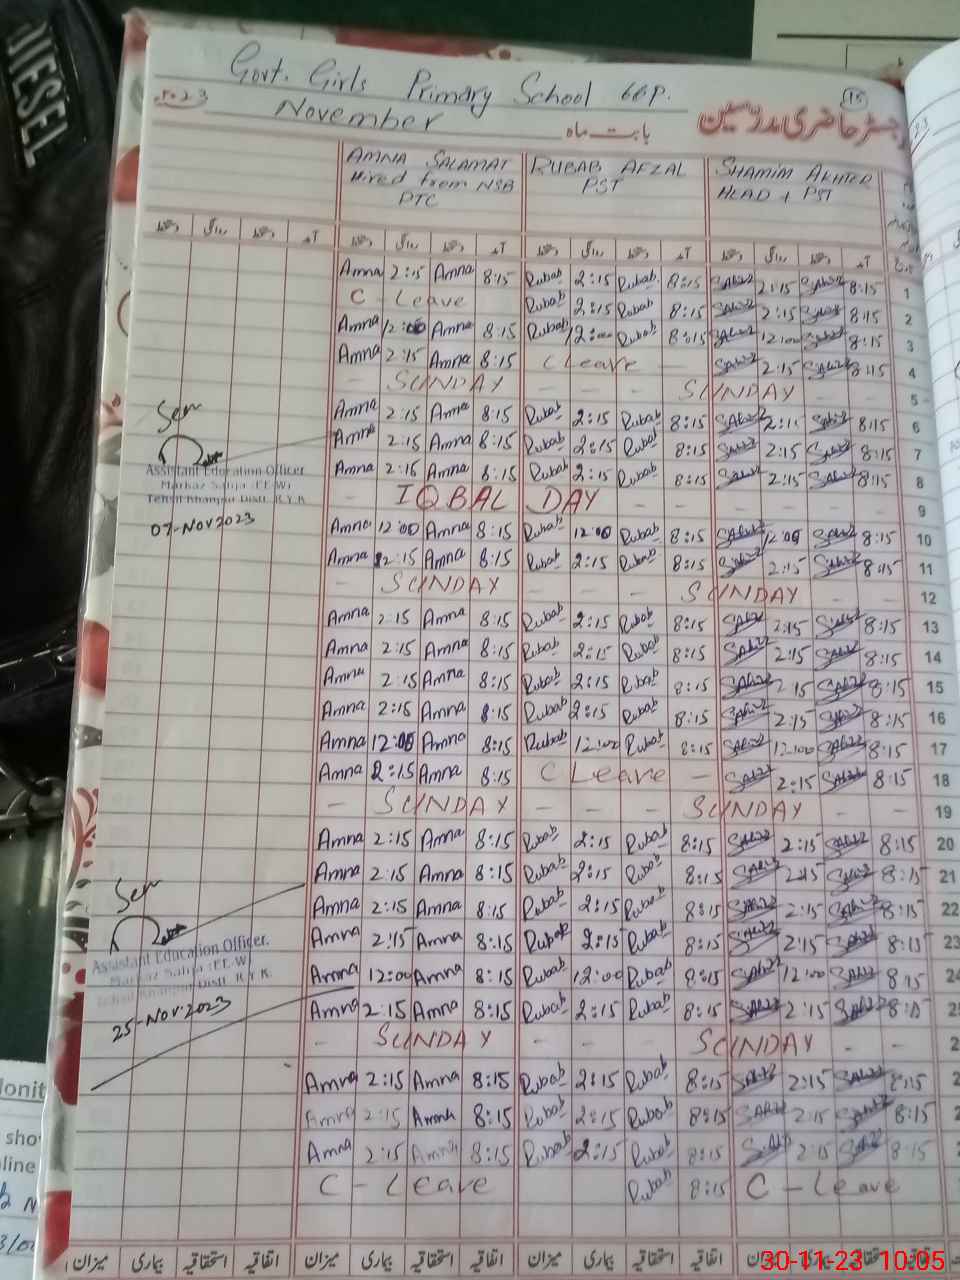 DIESEL
Govt. Girls Primary School 66P.
15
2023 November بابت ماہ رجسٹر حاضری مدرسین
AMNA SALAMAT RUBAB AFZAL SHAMIM AKHTER
Hired from NSB PST HEAD + PST
PTC
دستخط روانگی دستخط آمد دستخط روانگی دستخط آمد دستخط روانگی دستخط آمد دستخط روانگی دستخط آمد
Amna 2:15 Amna 8:15 Rubab 2:15 Rubab 8:15 2:15 8:15 1
C - Leave Rubab 2:15 Rubab 8:15 2:15 8:15 2
Amna 12:00 Amna 8:15 Rubab 12:00 Rubab 8:15 12:00 8:15 3
Amna 2:15 Amna 8:15 C Leave - 2:15 8:15 4
- SUNDAY - - - SUNDAY - - 5
Amna 2:15 Amna 8:15 Rubab 2:15 Rubab 8:15 2:15 8:15 6
Amna 2:15 Amna 8:15 Rubab 2:15 Rubab 8:15 2:15 8:15 7
Amna 2:15 Amna 8:15 Rubab 2:15 Rubab 8:15 2:15 8:15 8
- IQBAL DAY - - - - - 9
Amna 12:00 Amna 8:15 Rubab 12:00 Rubab 8:15 12:00 8:15 10
Amna 2:15 Amna 8:15 Rubab 2:15 Rubab 8:15 2:15 8:15 11
- SUNDAY - - - SUNDAY - - 12
Amna 2:15 Amna 8:15 Rubab 2:15 Rubab 8:15 2:15 8:15 13
Amna 2:15 Amna 8:15 Rubab 2:15 Rubab 8:15 2:15 8:15 14
Amna 2:15 Amna 8:15 Rubab 2:15 Rubab 8:15 2:15 8:15 15
Amna 2:15 Amna 8:15 Rubab 2:15 Rubab 8:15 2:15 8:15 16
Amna 12:00 Amna 8:15 Rubab 12:00 Rubab 8:15 12:00 8:15 17
Amna 2:15 Amna 8:15 C Leave - 2:15 8:15 18
- SUNDAY - - - SUNDAY - - 19
Amna 2:15 Amna 8:15 Rubab 2:15 Rubab 8:15 2:15 8:15 20
Amna 2:15 Amna 8:15 Rubab 2:15 Rubab 8:15 2:15 8:15 21
Amna 2:15 Amna 8:15 Rubab 2:15 Rubab 8:15 2:15 8:15 22
Amna 2:15 Amna 8:15 Rubab 2:15 Rubab 8:15 2:15 8:15 23
Amna 12:00 Amna 8:15 Rubab 12:00 Rubab 8:15 12:00 8:15
Amna 2:15 Amna 8:15 Rubab 2:15 Rubab 8:15 2:15 8:15
- SUNDAY - - - SUNDAY - -
Amna 2:15 Amna 8:15 Rubab 2:15 Rubab 8:15 2:15 8:15
Amna 2:15 Amna 8:15 Rubab 2:15 Rubab 8:15 2:15 8:15
Amna 2:15 Amna 8:15 Rubab 2:15 Rubab 8:15 2:15 8:15
C - Leave Rubab 8:15 C - Leave
Seen
Assistant Education Officer
Markaz Sahja (EE-W)
Tehsil Khanpur Distt. R.Y.K
07-Nov 2023
Seen
Assistant Education Officer.
Markaz Sahja (EE-W)
Tehsil Khanpur Distt. R.Y.K.
25-Nov 2023
میزان بیماری استحقاقیہ اتفاقیہ میزان بیماری استحقاقیہ اتفاقیہ میزان بیماری استحقاقیہ اتفاقیہ میزان
30-11-23 10:05